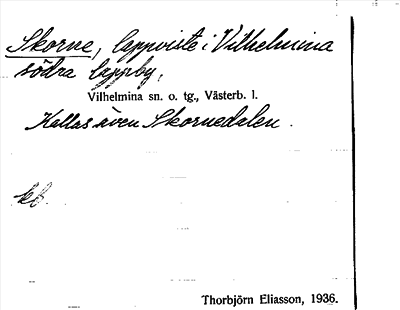 Skorne, lappviste i Vilhelmina
södra lappby,
Vilhelmina sn. o. tg., Västerb. l.
Kallas även Skornedalen.
kb.
Thorbjörn Eliasson, 1936.